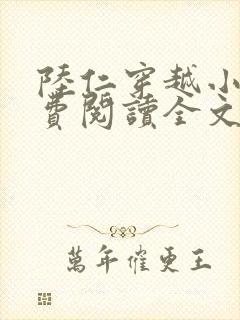 陸仁穿越小
費閱讀全文
萬年催更王